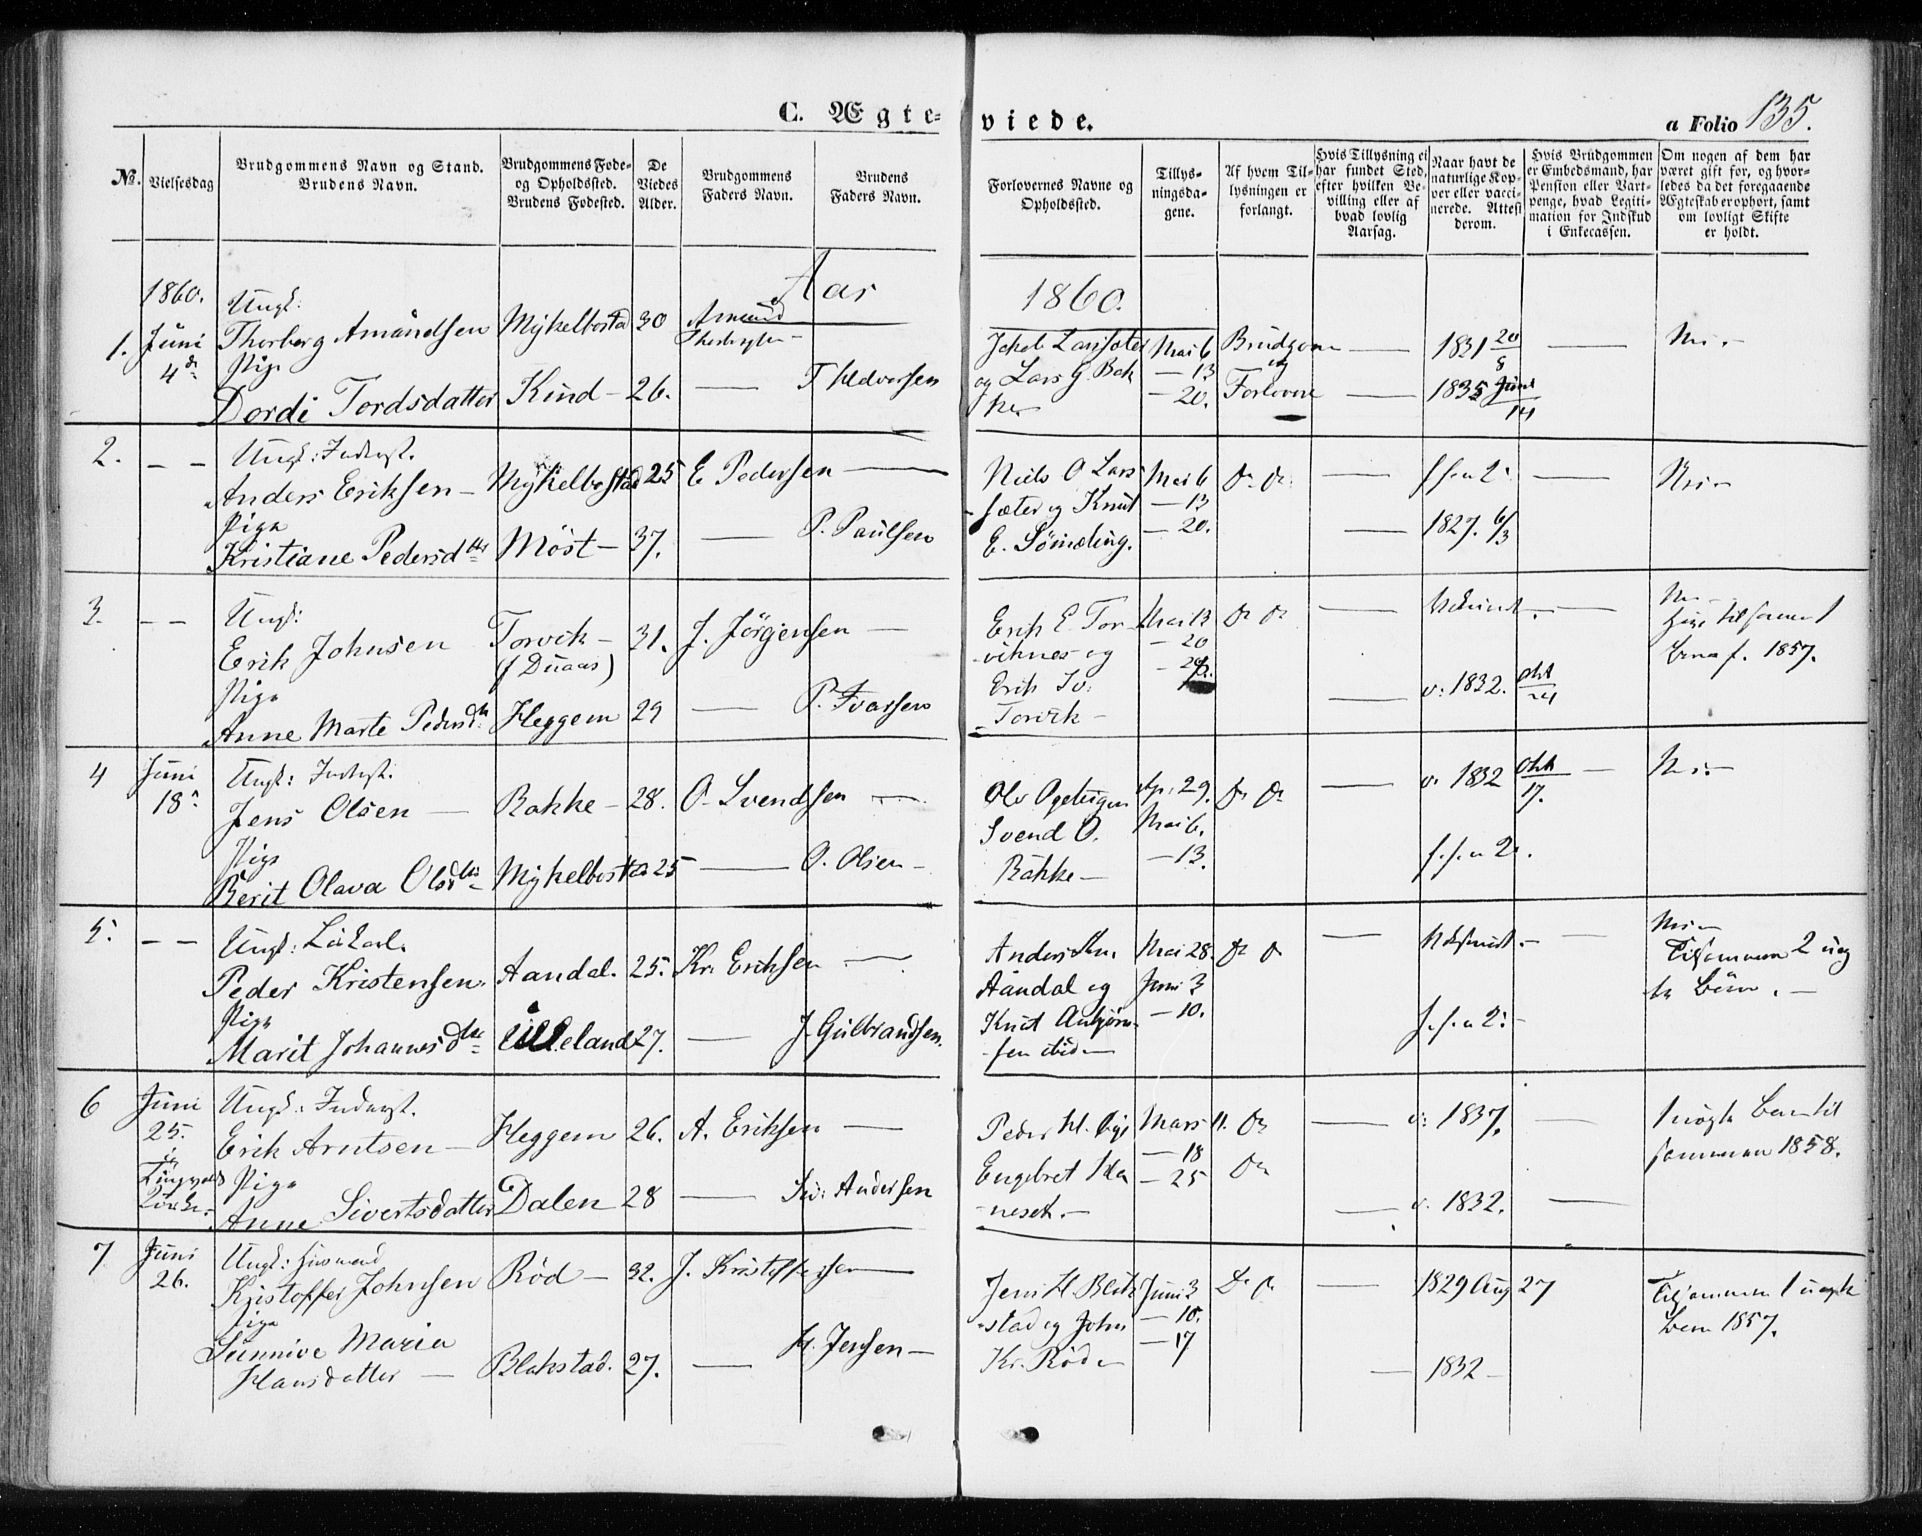 C. Ægte-
viede.
a Folio 135.
No.
Vielsesdag
Brudgommens Navn og Stand.
Brudens Navn.
Brudgommens Føde-
og Opholdssted.
Brudens Fødested.
De
Viedes
Alder.
Brudgommens
Faders Navn.
Brudens
Faders Navn.
Forlovernes Navne og
Opholdssted.
Tillys-
ningsda-
gene.
Af hvem Til-
lysningen er
forlangt.
Hvis Tillysning ei
har fundet Sted,
efter hvilken Be-
villing eller af
hvad lovlig
Aarsag.
Naar havt de
naturlige Kop-
per eller vacci-
nerede. Attest
derom.
Hvis Brudgommen
er Embedsmand, har
Pension eller Vart-
penge, hvad Legiti-
mation for Indskud
i Enkecassen.
Om nogen af dem har
været gift før, og hvor-
ledes da det foregaaende
Ægteskab er ophørt, samt
om lovligt Skifte
er holdt.
Aar
1860.
1860.
1. Juni
4de
Ungk:
Thorberg Amundsen
Pige
Dordi Tordsdatter
Mykelbostad
Kind
30
26.
Amund
T Hdvorsen
og Lars G. Bak
ke
Mai 6
13
20.
Brudgom
og
Forlovere
1831 20/8
1835 Juni/14
Nei
2.
Ungk: Inderst.
Anders Eriksen
Pige
Kristiane Pedersdtr
Mykelbostad
Möst
25
37.
E Pedersen
P. Paulsen
Niels O Lars
sæter og Knut
E.
Mai 6
13
20.
Do Do
1827. 6/3
Nei
3.
Ungk:
Erik Johnsen
Pige
Anne Marte Pedersdtr
Torvik
(Duaas)
Heggem
31.
29
J. Jörgensen
P. Ivarsen
Erik E Tor
viknes og
Erik Iv:
Torvik
Mai 13
20
Do Do
v: 1832. Okt/24
Nei
Barn f. 1857.
4
Juni
18
Ungk: Inderst.
Jens Olsen
Pige
Berit Olava Olsdtr
Bakke
Mykelbostad
28.
25
O. Svendsen
O. Olsen
Svend O.
Bakke
Apr. 29.
Mai 6.
13.
Do Do
v. 1832 Okt/17.
Nei
5.
Ungk:
Peder Kristensen
Pige
Marit Johannesdtr
Aandal.
Ulleland
25.
27.
Kr. Eriksen
J. Gulbrandsen.
Anders Kr.
Aandal og
Knut
sen ibid
Mai 28.
Juni 3
10.
Do Do
Nei
Tilsammen 2 uæg
te Börn.
6
Juni
25.
i
Tingvold
Kirke
Ungk: Inderst.
Erik Arntsen
Pige
Anne Sivertsdatter
Heggem
Dalen
26.
28
A. Eriksen
Siv: Andersen
Peder H.
Engebret
neset.
Mars 11.
18
25
Do
Do
v: 1837.
v. 1832.
1 uægte Barn til
sammen 1858.
7
Juni
26.
Ungk: Husmand
Kristoffer Johnsen
Pige
Sunnive Maria
Hansdatter
Röd
Blakstad.
32.
27.
J. Kristoffersen
H. Jensen
Jens H. Blak
stad og John
Kr. Röd
Juni 3
10.
17
Do Do
1829 Aug 27
1832
Tilsammen 1 uægte
Barn 1857.